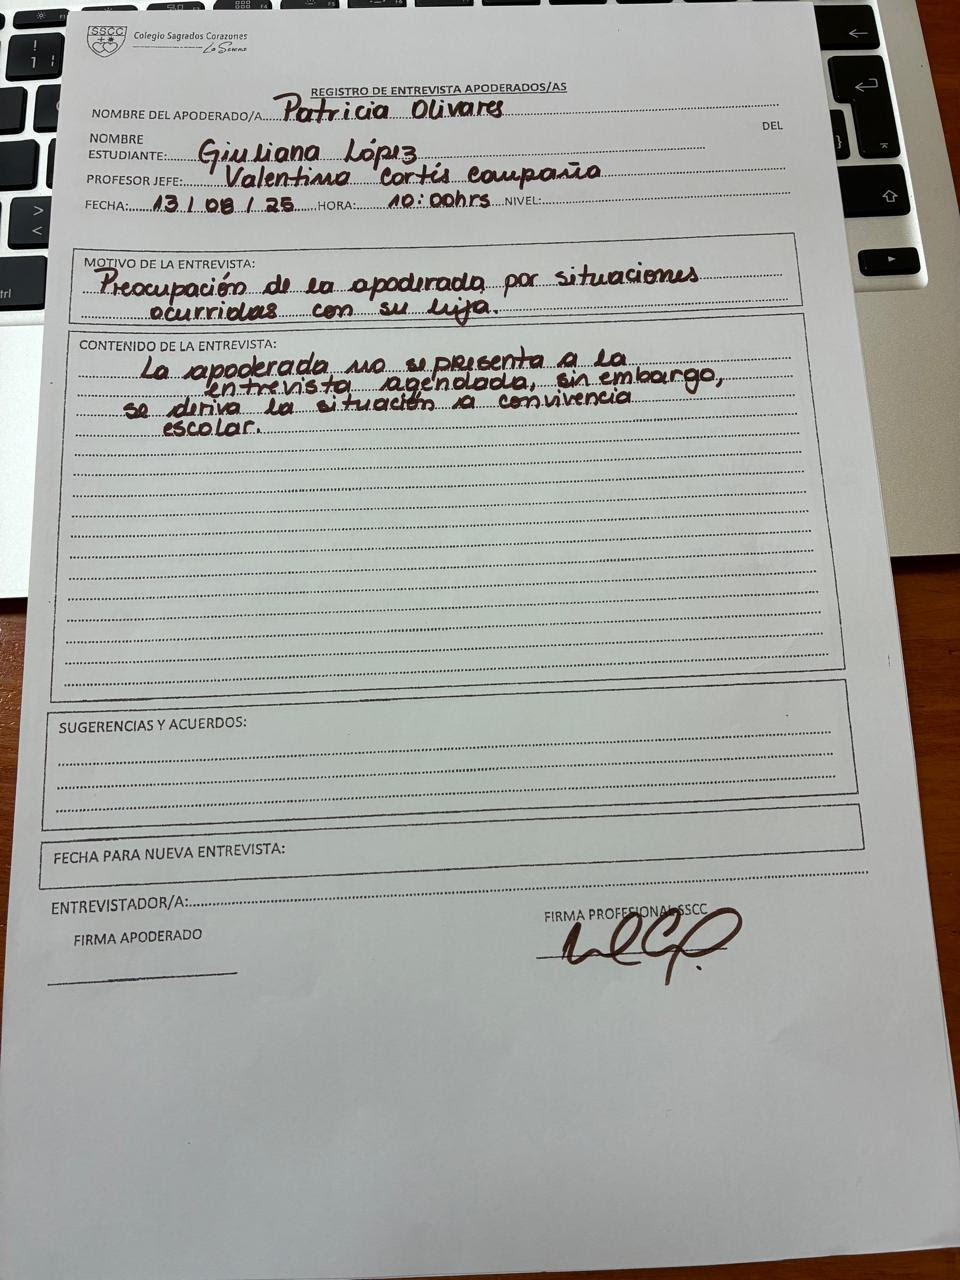 SSCC
Colegio Sagrados Corazones
La Serena
REGISTRO DE ENTREVISTA APODERADOS/AS
NOMBRE DEL APODERADO/A Patricia Olivares
NOMBRE DEL
ESTUDIANTE: Giuliana López
PROFESOR JEFE: Valentina Cortís Campaña
FECHA: 13/08/25 HORA: 10:00hrs NIVEL:
MOTIVO DE LA ENTREVISTA:
Preocupación de la apoderada por situaciones
ocurridas con su hija.
CONTENIDO DE LA ENTREVISTA:
La apoderada no se presenta a la
entrevista agendada, sin embargo,
se deriva la situación a convivencia
escolar.
SUGERENCIAS Y ACUERDOS:
FECHA PARA NUEVA ENTREVISTA:
ENTREVISTADOR/A:
FIRMA APODERADO
FIRMA PROFESIONAL SSCC